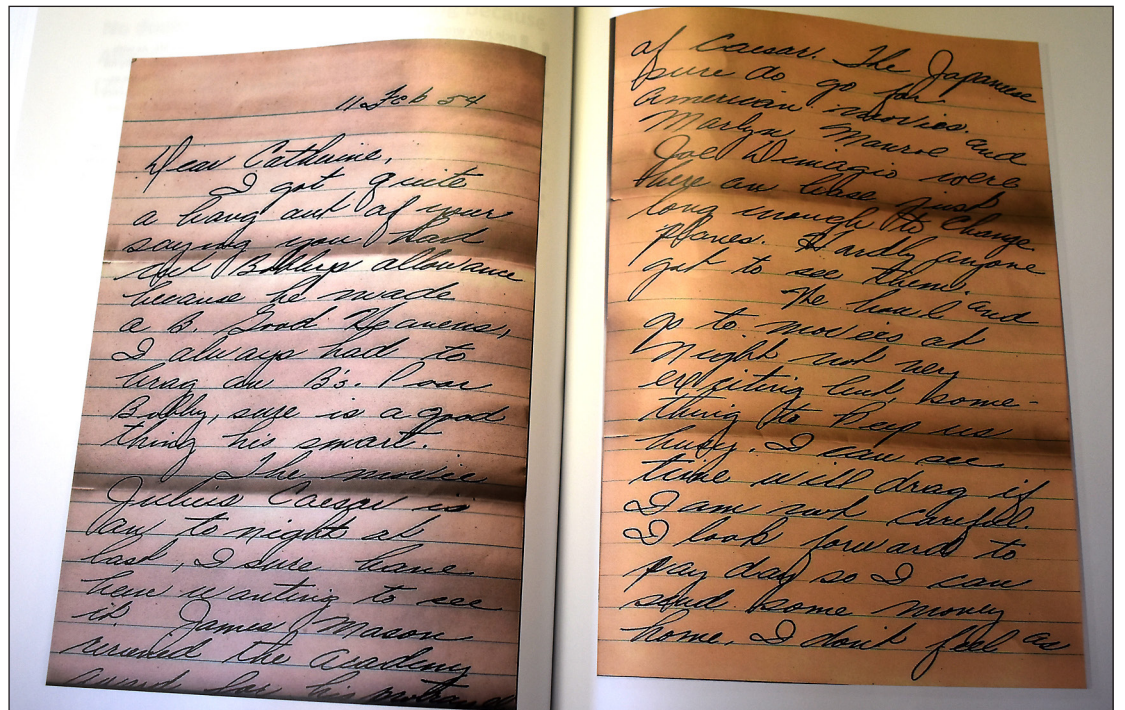 11 Feb 54
Dear Catherine,
I got quite
a bang out of your
saying you had
cut Bobbys allowance
because he made
a B. Good Heavens,
I always had to
brag on B's. Poor
Bobby, sure is a good
thing his smart.
The movie
Julius Caesar is
on to night at
last, I sure have
been wanting to see
it. James Mason
received the academy
award for his
of Caesar. The Japanese
sure do go for
American movies.
Marlyn Monroe and
Joe Dimagio were
here an hour just
long enough to change
planes. Hardly anyone
got to see them.
We bowl and
go to movies at
night not very
exciting but, some-
thing to keep us
busy. I can see
time will drag if
I am not careful.
I look forward to
pay day so I can
send some money
home. I don't feel as